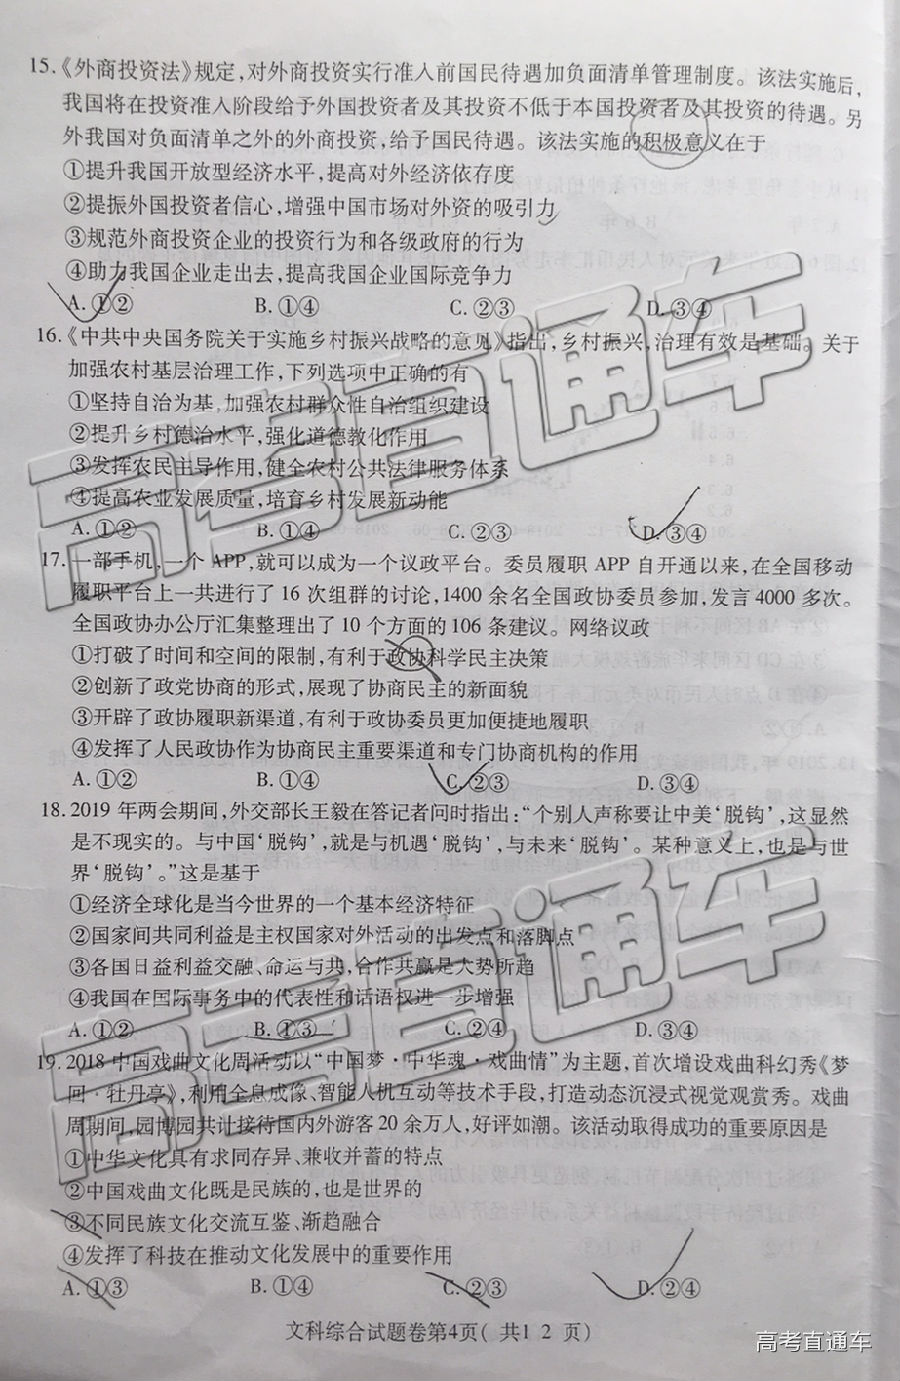 15.《外商投资法》规定,对外商投资实行准入前国民待遇加负面清单管理制度。该法实施后,
我国将在投资准入阶段给予外国投资者及其投资不低于本国投资者及其投资的待遇。另
外我国对负面清单之外的外商投资,给予国民待遇。该法实施的积极意义在于
①提升我国开放型经济水平,提高对外经济依存度
②提振外国投资者信心,增强中国市场对外资的吸引力
③规范外商投资企业的投资行为和各级政府的行为
④助力我国企业走出去,提高我国企业国际竞争力
A.①② B.①④ C.②③ D.③④
16.《中共中央国务院关于实施乡村振兴战略的意见》指出,乡村振兴,治理有效是基础。关于
加强农村基层治理工作,下列选项中正确的有
①坚持自治为基,加强农村群众性自治组织建设
②提升乡村德治水平,强化道德教化作用
③发挥农民主导作用,健全农村公共法律服务体系
④提高农业发展质量,培育乡村发展新动能
A.①② B.①④ C.②③ D.③④
17.一部手机,一个 APP,就可以成为一个议政平台。委员履职 APP 自开通以来,在全国移动
履职平台上一共进行了 16 次组群的讨论,1400 余名全国政协委员参加,发言 4000 多次。
全国政协办公厅汇集整理出了 10 个方面的 106 条建议。网络议政
①打破了时间和空间的限制,有利于政协科学民主决策
②创新了政党协商的形式,展现了协商民主的新面貌
③开辟了政协履职新渠道,有利于政协委员更加便捷地履职
④发挥了人民政协作为协商民主重要渠道和专门协商机构的作用
A.①② B.①④ C.②③ D.③④
18.2019 年两会期间,外交部长王毅在答记者问时指出:“个别人声称要让中美‘脱钩’,这显然
是不现实的。与中国‘脱钩’,就是与机遇‘脱钩’,与未来‘脱钩’。某种意义上,也是与世
界‘脱钩’。”这是基于
①经济全球化是当今世界的一个基本经济特征
②国家间共同利益是主权国家对外活动的出发点和落脚点
③各国日益利益交融、命运与共,合作共赢是大势所趋
④我国在国际事务中的代表性和话语权进一步增强
A.①② B.①③ C.②④ D.③④
19.2018 中国戏曲文化周活动以“中国梦·中华魂·戏曲情”为主题,首次增设戏曲科幻秀《梦
回·牡丹亭》,利用全息成像、智能人机互动等技术手段,打造动态沉浸式视觉观赏秀。戏曲
周期间,园博园共计接待国内外游客 20 余万人,好评如潮。该活动取得成功的重要原因是
①中华文化具有求同存异、兼收并蓄的特点
②中国戏曲文化既是民族的,也是世界的
③不同民族文化交流互鉴、渐趋融合
④发挥了科技在推动文化发展中的重要作用
A.①③ B.①④ C.②③ D.②④
文科综合试题卷第4页( 共1 2 页)
高考直通车
高考直通车
高考直通车